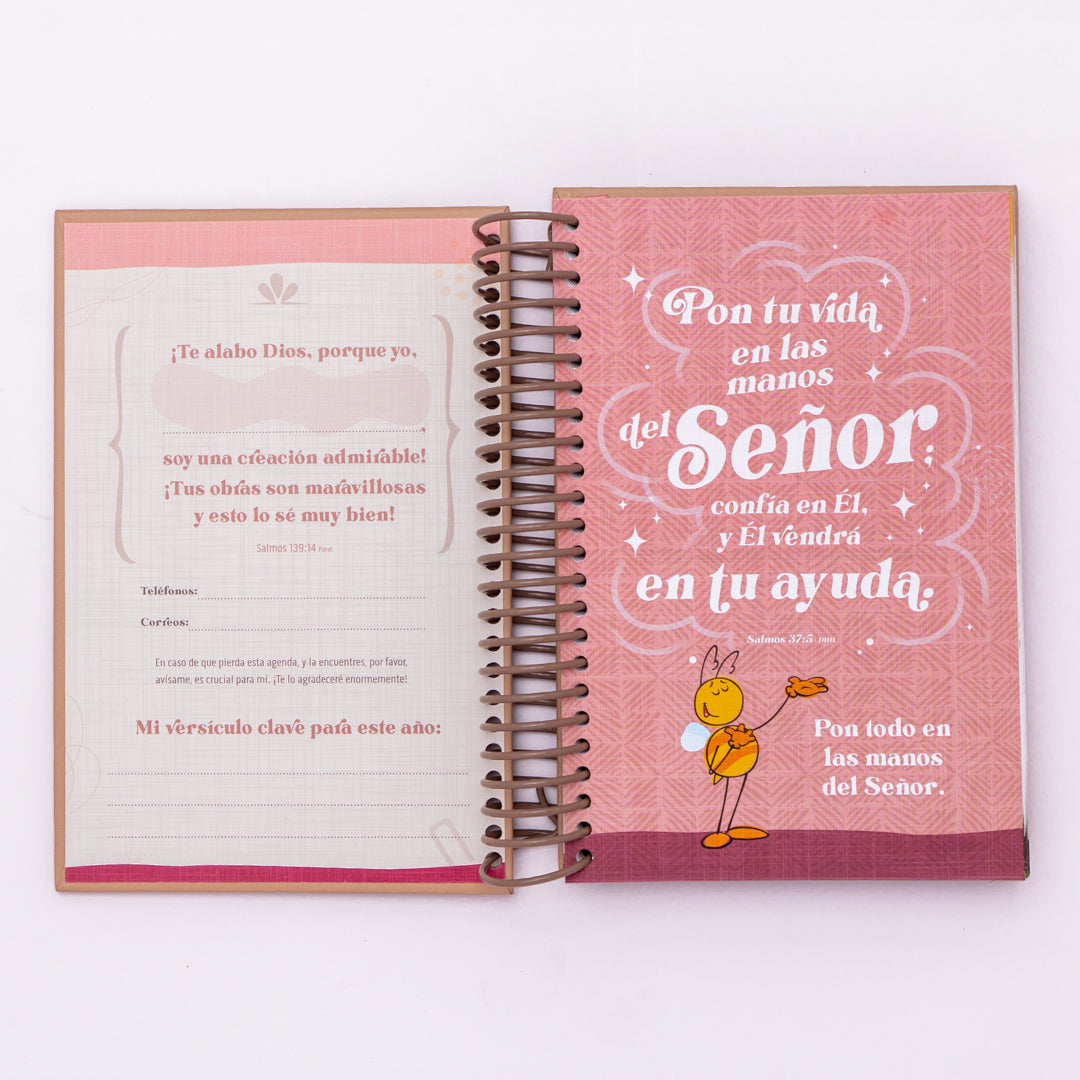 ¡Te alabo Dios, porque yo,
,
soy una creación admirable!
¡Tus obras son maravillosas
y esto lo sé muy bien!
Salmos 139:14 Paraf.
Teléfonos:
Correos:
En caso de que pierda esta agenda, y la encuentres, por favor,
avísame, es crucial para mí. ¡Te lo agradeceré enormemente!
Mi versículo clave para este año:
Pon tu vida
en las
manos
del Señor;
confía en Él,
y Él vendrá
en tu ayuda.
Salmos 37:5 DHH
Pon todo en
las manos
del Señor.